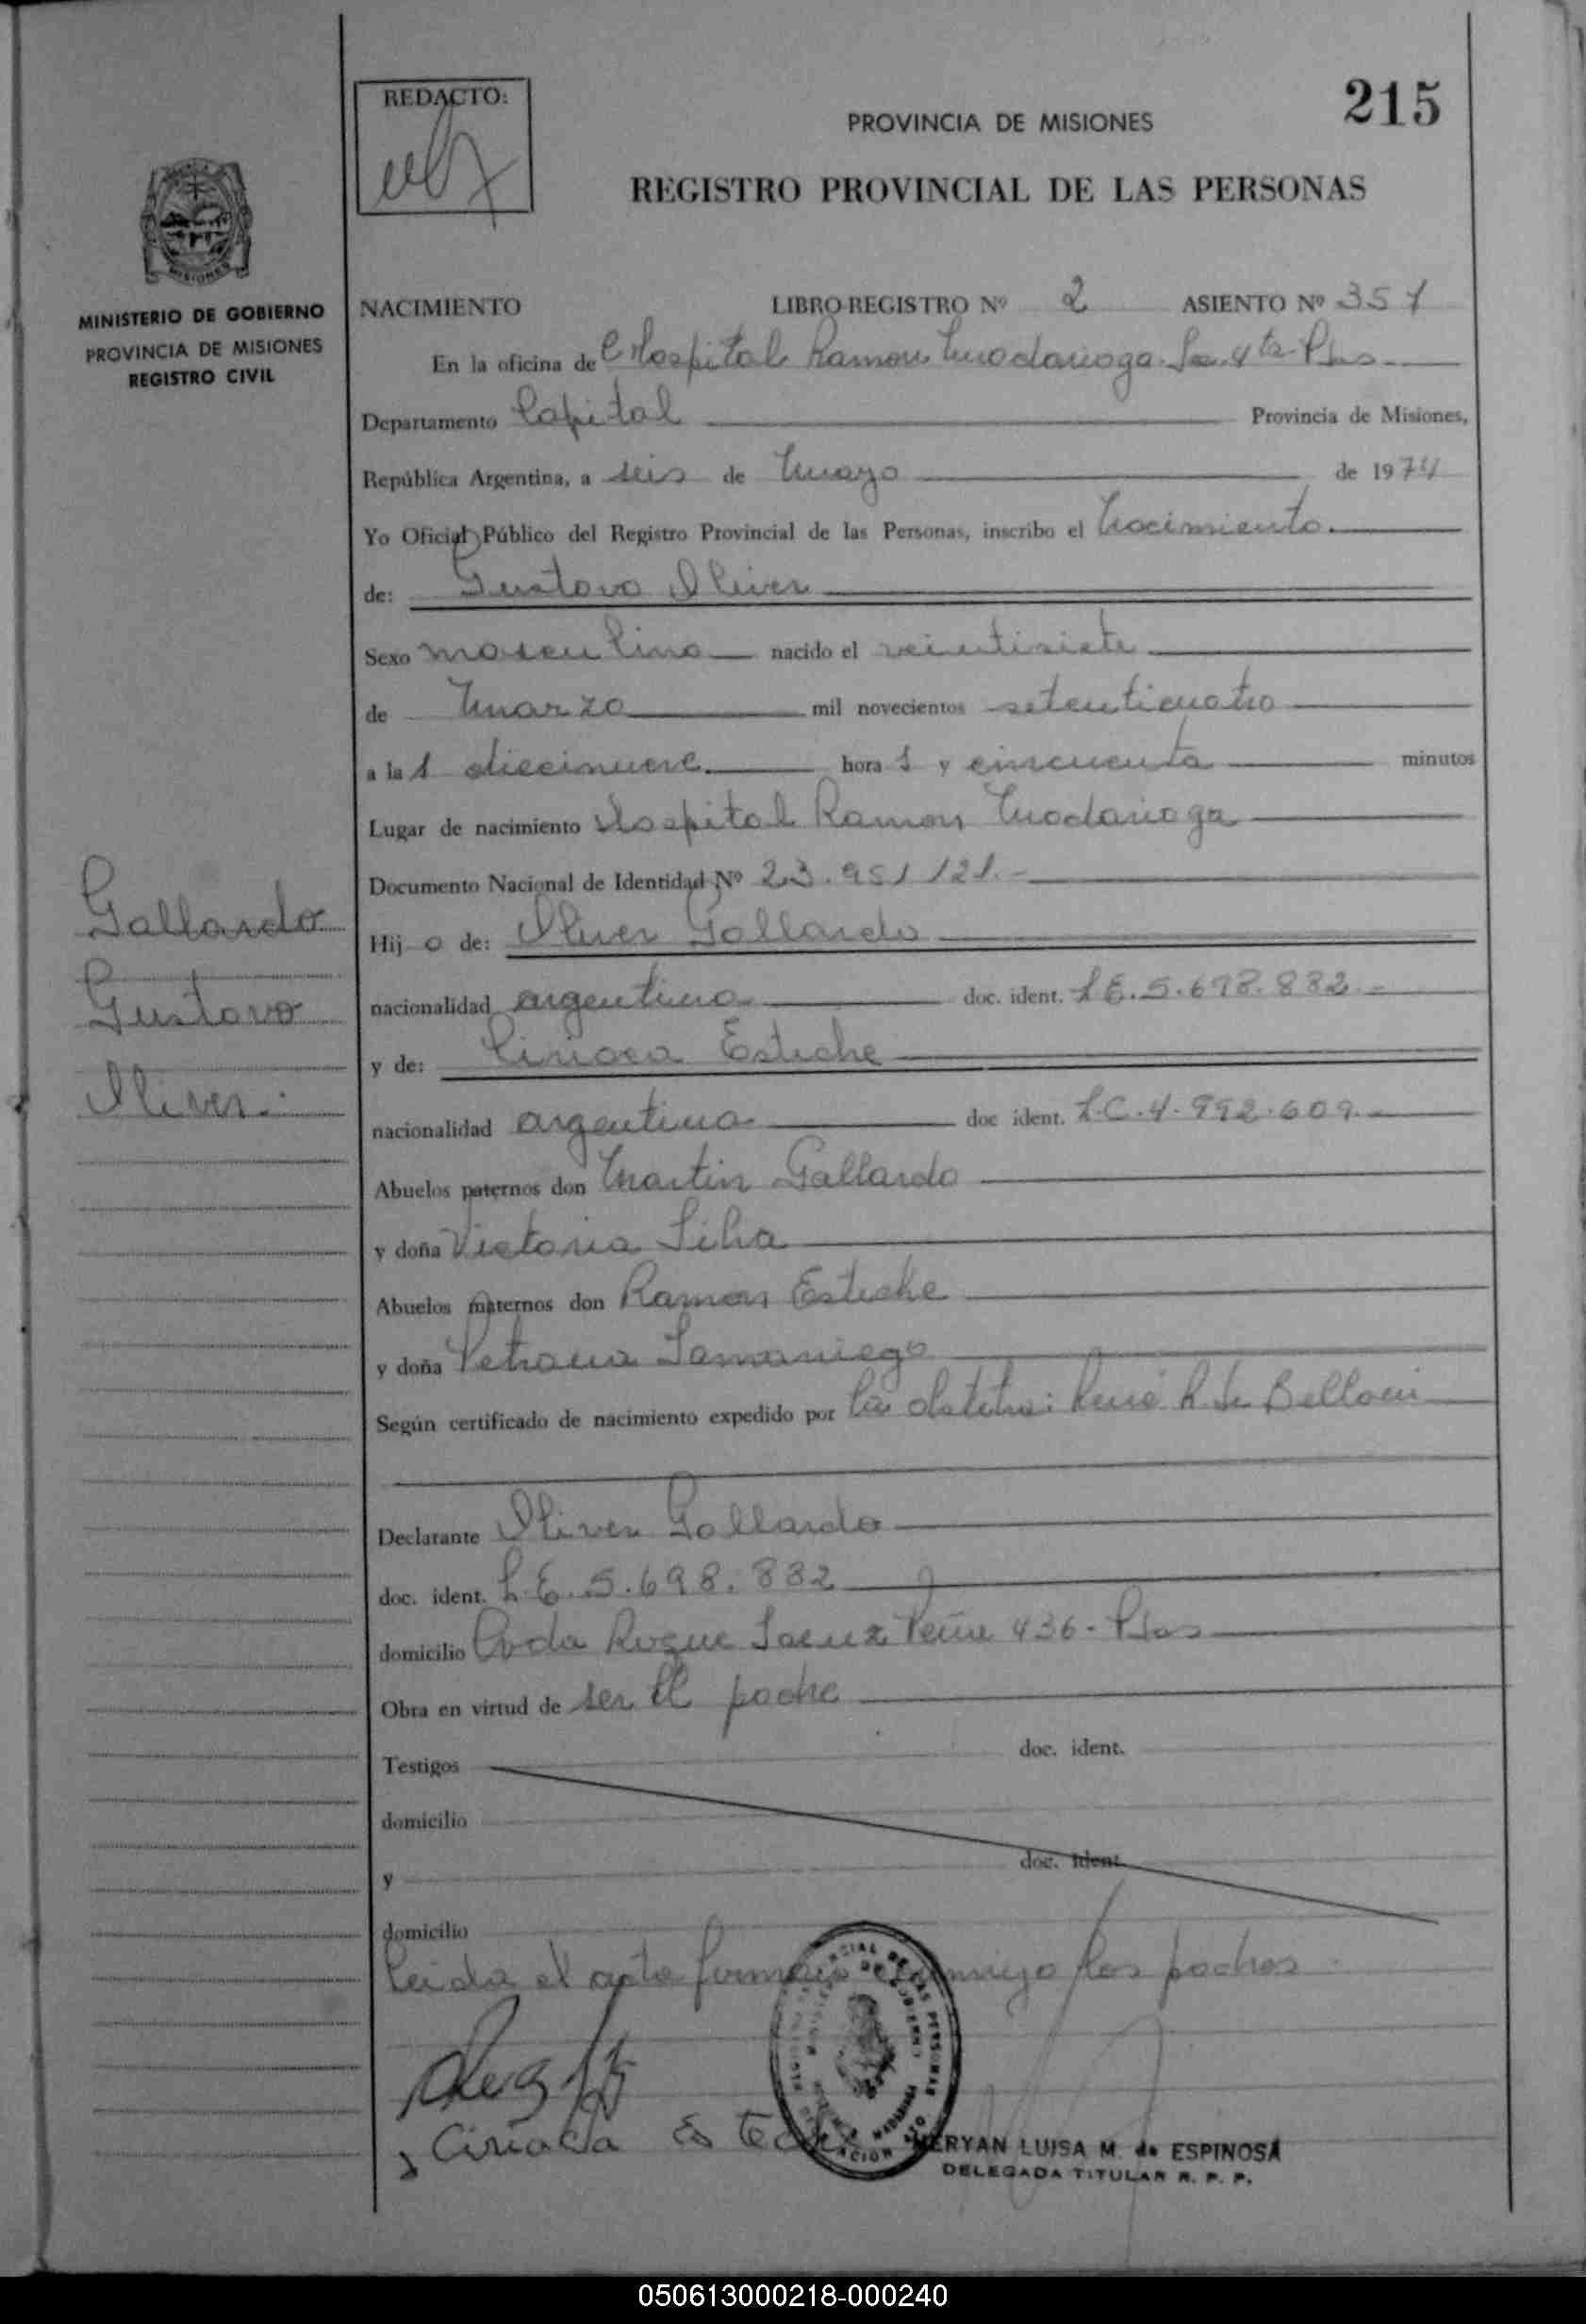 REDACTO:
PROVINCIA DE MISIONES
215
REGISTRO PROVINCIAL DE LAS PERSONAS
MISIONES
MINISTERIO DE GOBIERNO
PROVINCIA DE MISIONES
REGISTRO CIVIL
NACIMIENTO LIBRO-REGISTRO Nº 2 ASIENTO Nº 357
En la oficina de Hospital Ramon Madariaga Se. 4ta Pdas
Departamento Capital Provincia de Misiones,
República Argentina, a seis de Mayo de 1974
Yo Oficial Público del Registro Provincial de las Personas, inscribo el Nacimiento
de: Gustavo Oliver
Sexo masculino nacido el veintisiete
de Marzo mil novecientos setenticuatro
a las diecinueve horas y cincuenta minutos
Lugar de nacimiento Hospital Ramon Madariaga
Documento Nacional de Identidad Nº 23.951.121.-
Hijo de: Oliver Gallardo
nacionalidad argentina doc. ident. L.E. 5.698.832.-
y de: Ciriaca Esteche
nacionalidad argentina doc ident. L.C. 4.992.609.
Abuelos paternos don Martin Gallardo
y doña Victoria Silva
Abuelos maternos don Ramon Esteche
y doña Petrona Samaniego
Según certificado de nacimiento expedido por la obstetra: René R. de Belloni
Declarante Oliver Gallardo
doc. ident. L.E. 5.698.832
domicilio Avda Roque Saenz Peña 436 - Pdas
Obra en virtud de ser el padre
Testigos doc. ident.
domicilio
y doc. ident.
domicilio
Leida el acta firman conmigo los padres
Gallardo
Gustavo
Oliver.
Ciriaca Estech
MERYAN LUISA M. de ESPINOSA
DELEGADA TITULAR R. P. P.
050613000218-000240